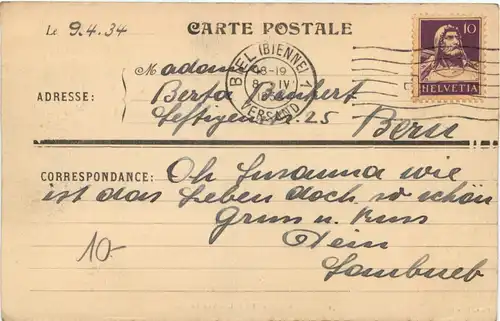 Le 9.4.34
CARTE POSTALE
10
HELVETIA
BIEL (BIENNE) 1
8-19
IV
VERSAND
Madame
ADRESSE:
Berta
25
Bern
CORRESPONDANCE: Oh Susanna wie
ist das Leben doch so schön
Gruss u. Kuss
Dein
10-